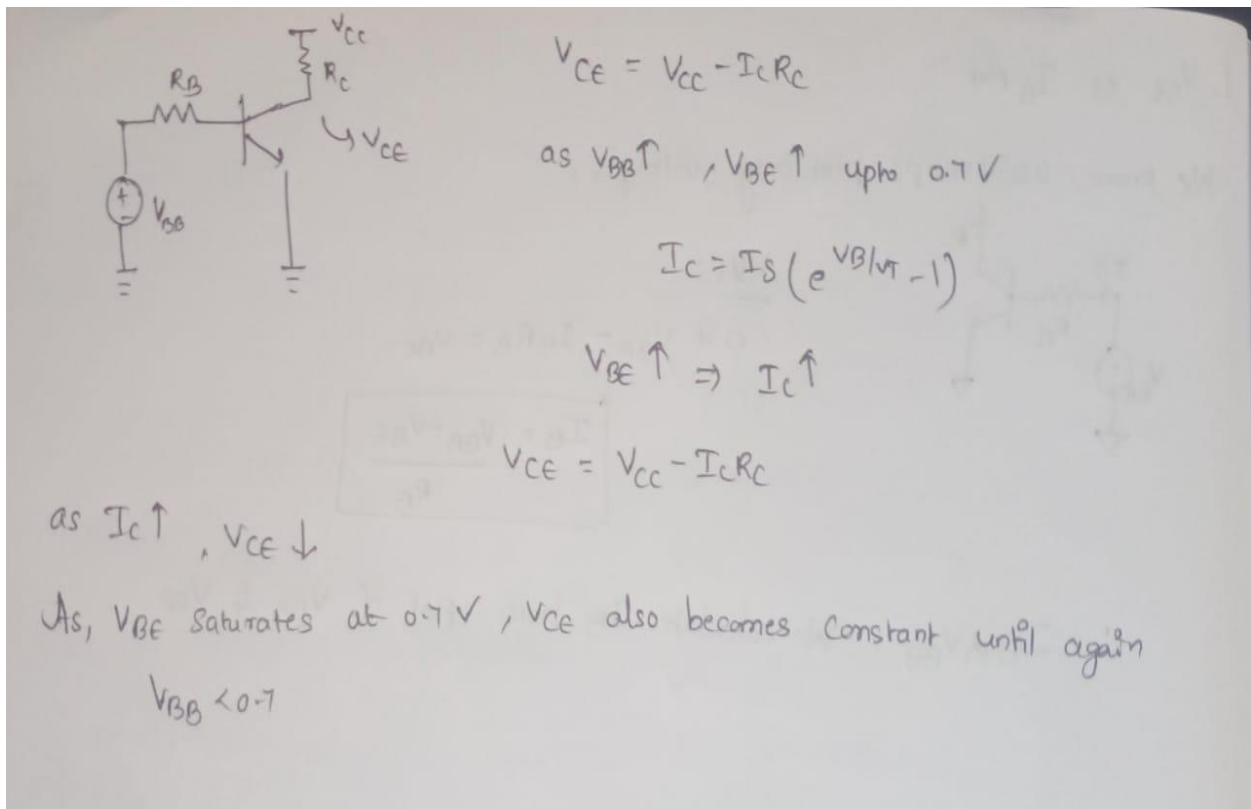 V_CC
R_C
R_B
V_CE
V_BB
V_CE = V_CC - I_C R_C
as V_BB↑ , V_BE ↑ upto 0.7 V
I_C = I_S (e^{VB/VT} - 1)
V_BE ↑ ⇒ I_C ↑
V_CE = V_CC - I_C R_C
as I_C ↑ , V_CE ↓
As, V_BE saturates at 0.7 V , V_CE also becomes constant until again
V_BB < 0.7